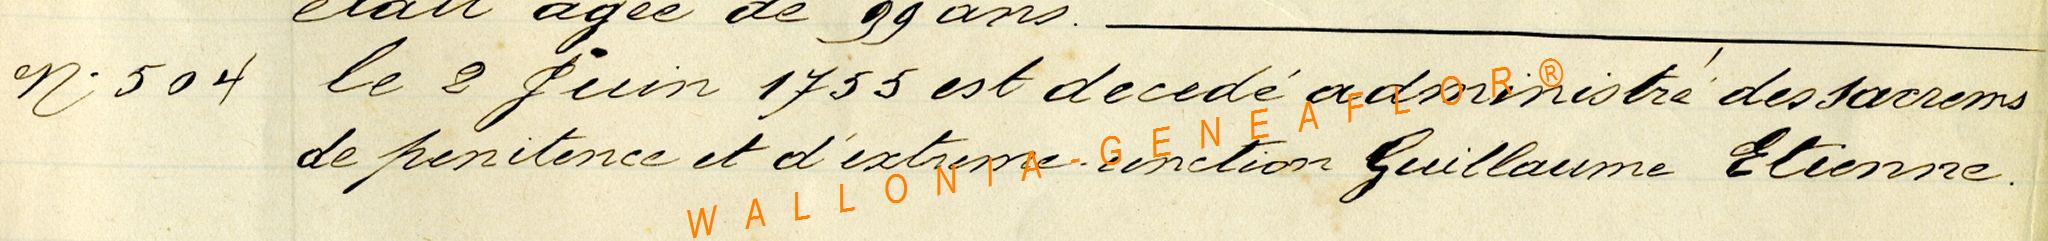 était agée de 99 ans.
N. 504 le 2 Juin 1755 est decedé administré des sacrems
de penitence et d'extreme-onction Guillaume Etienne.
WALLONIA-GENEAFLOR®